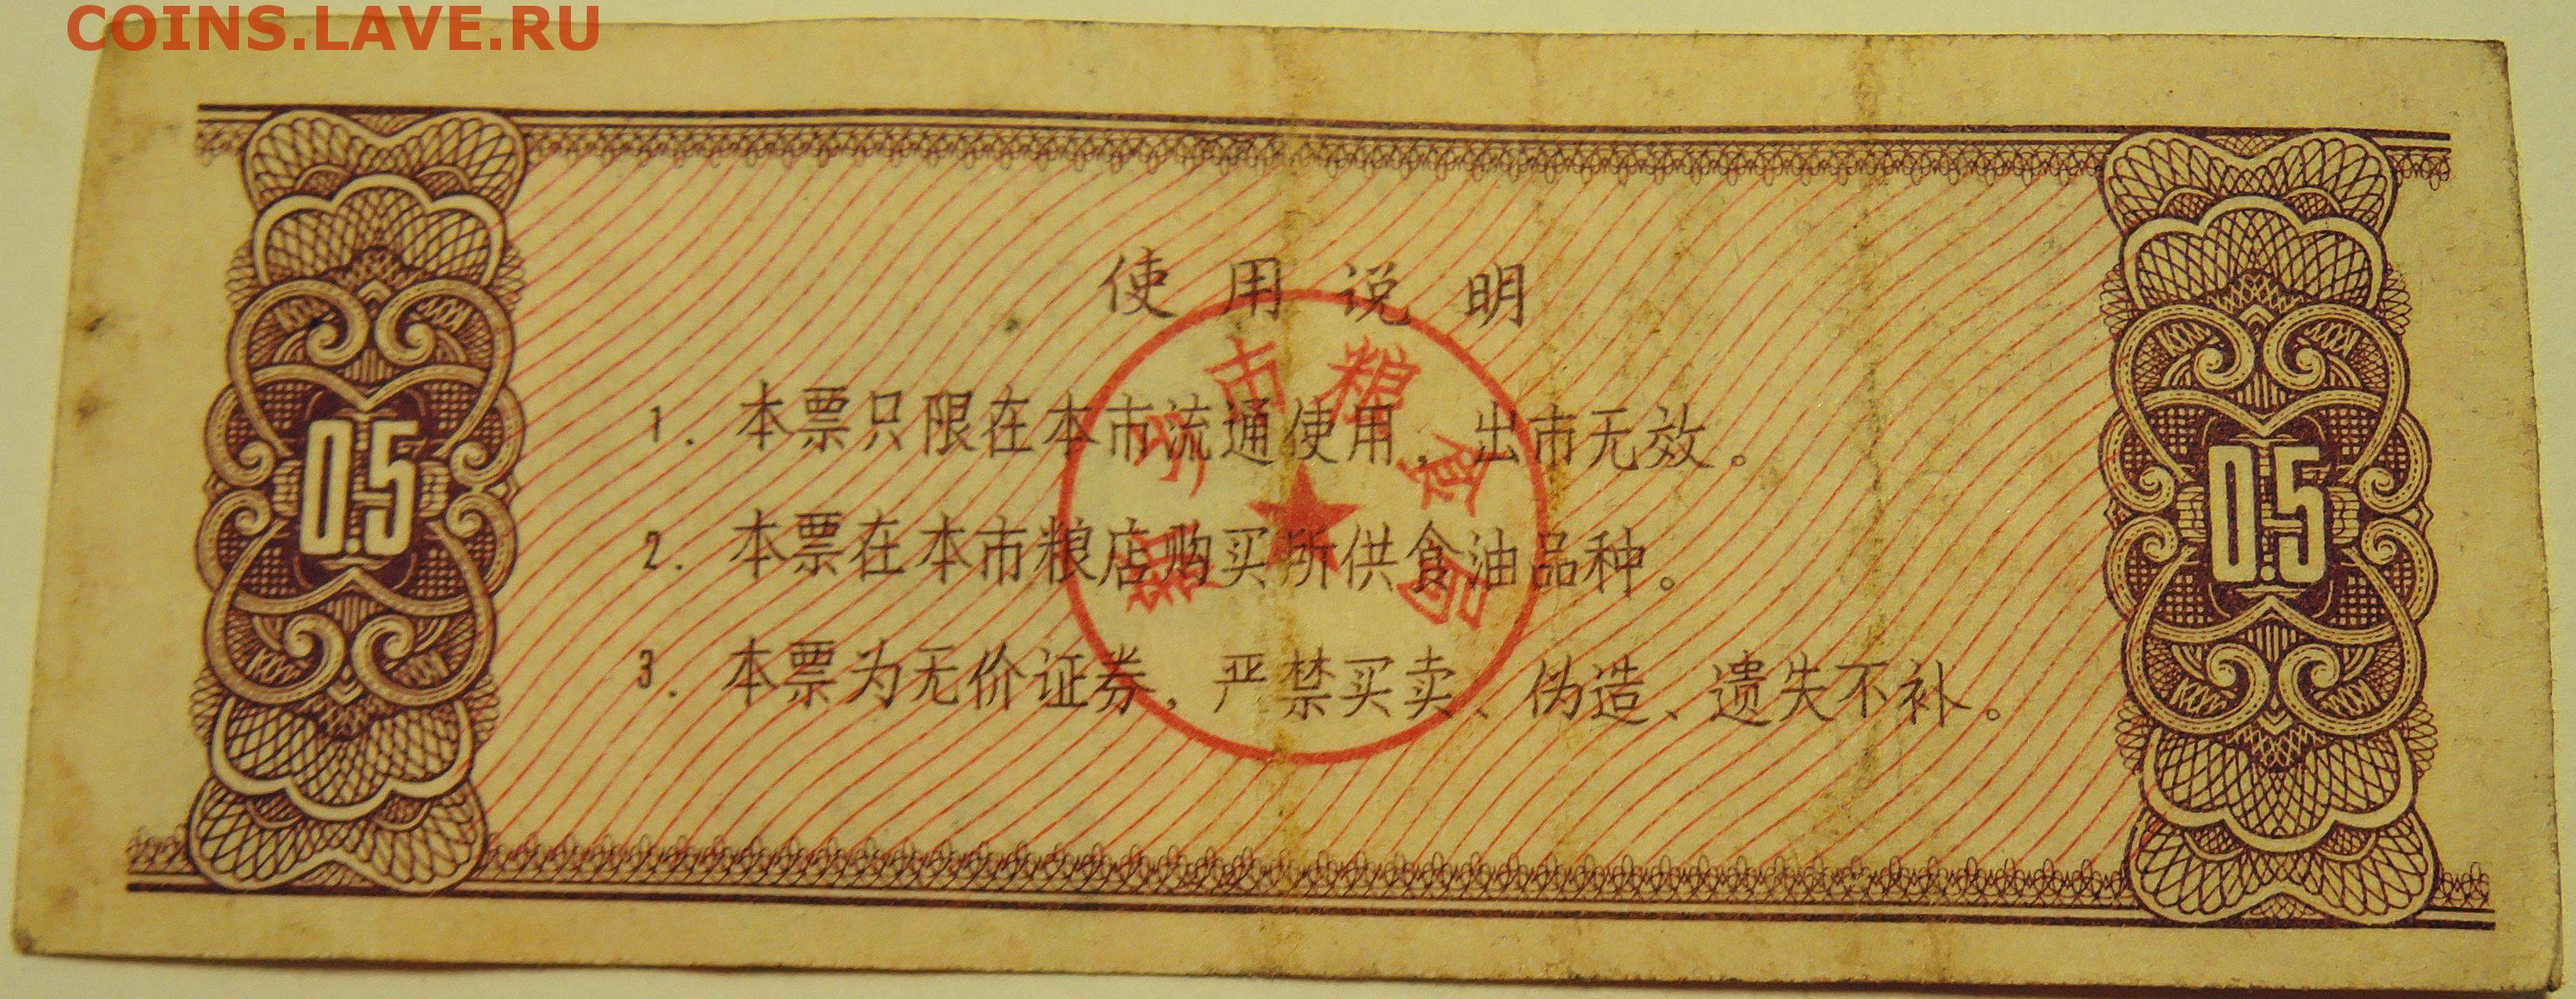 COINS.LAVE.RU
使用说明
1. 本票只限在本市流通使用，出市无效。
2. 本票在本市粮店购买所供食油品种。
3. 本票为无价证券，严禁买卖、伪造、遗失不补。
0.5
0.5
市粮食局